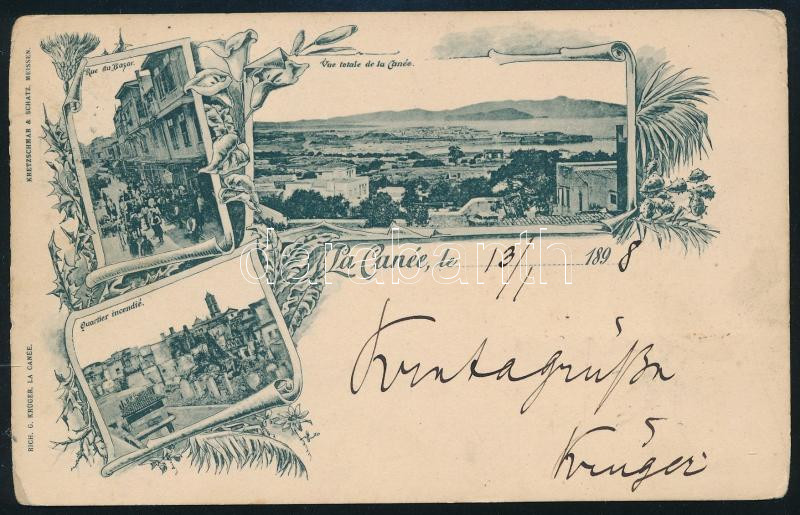 Rue du Bazar.
Vue totale de la Canée.
KRETZSCHMAR & SCHATZ, MEISSEN.
La Canée, le 13/1 1898
Quartier incendié.
RICH. G. KRÜGER, LA CANÉE.
Kretagrüße
Krüger
darabanth.com